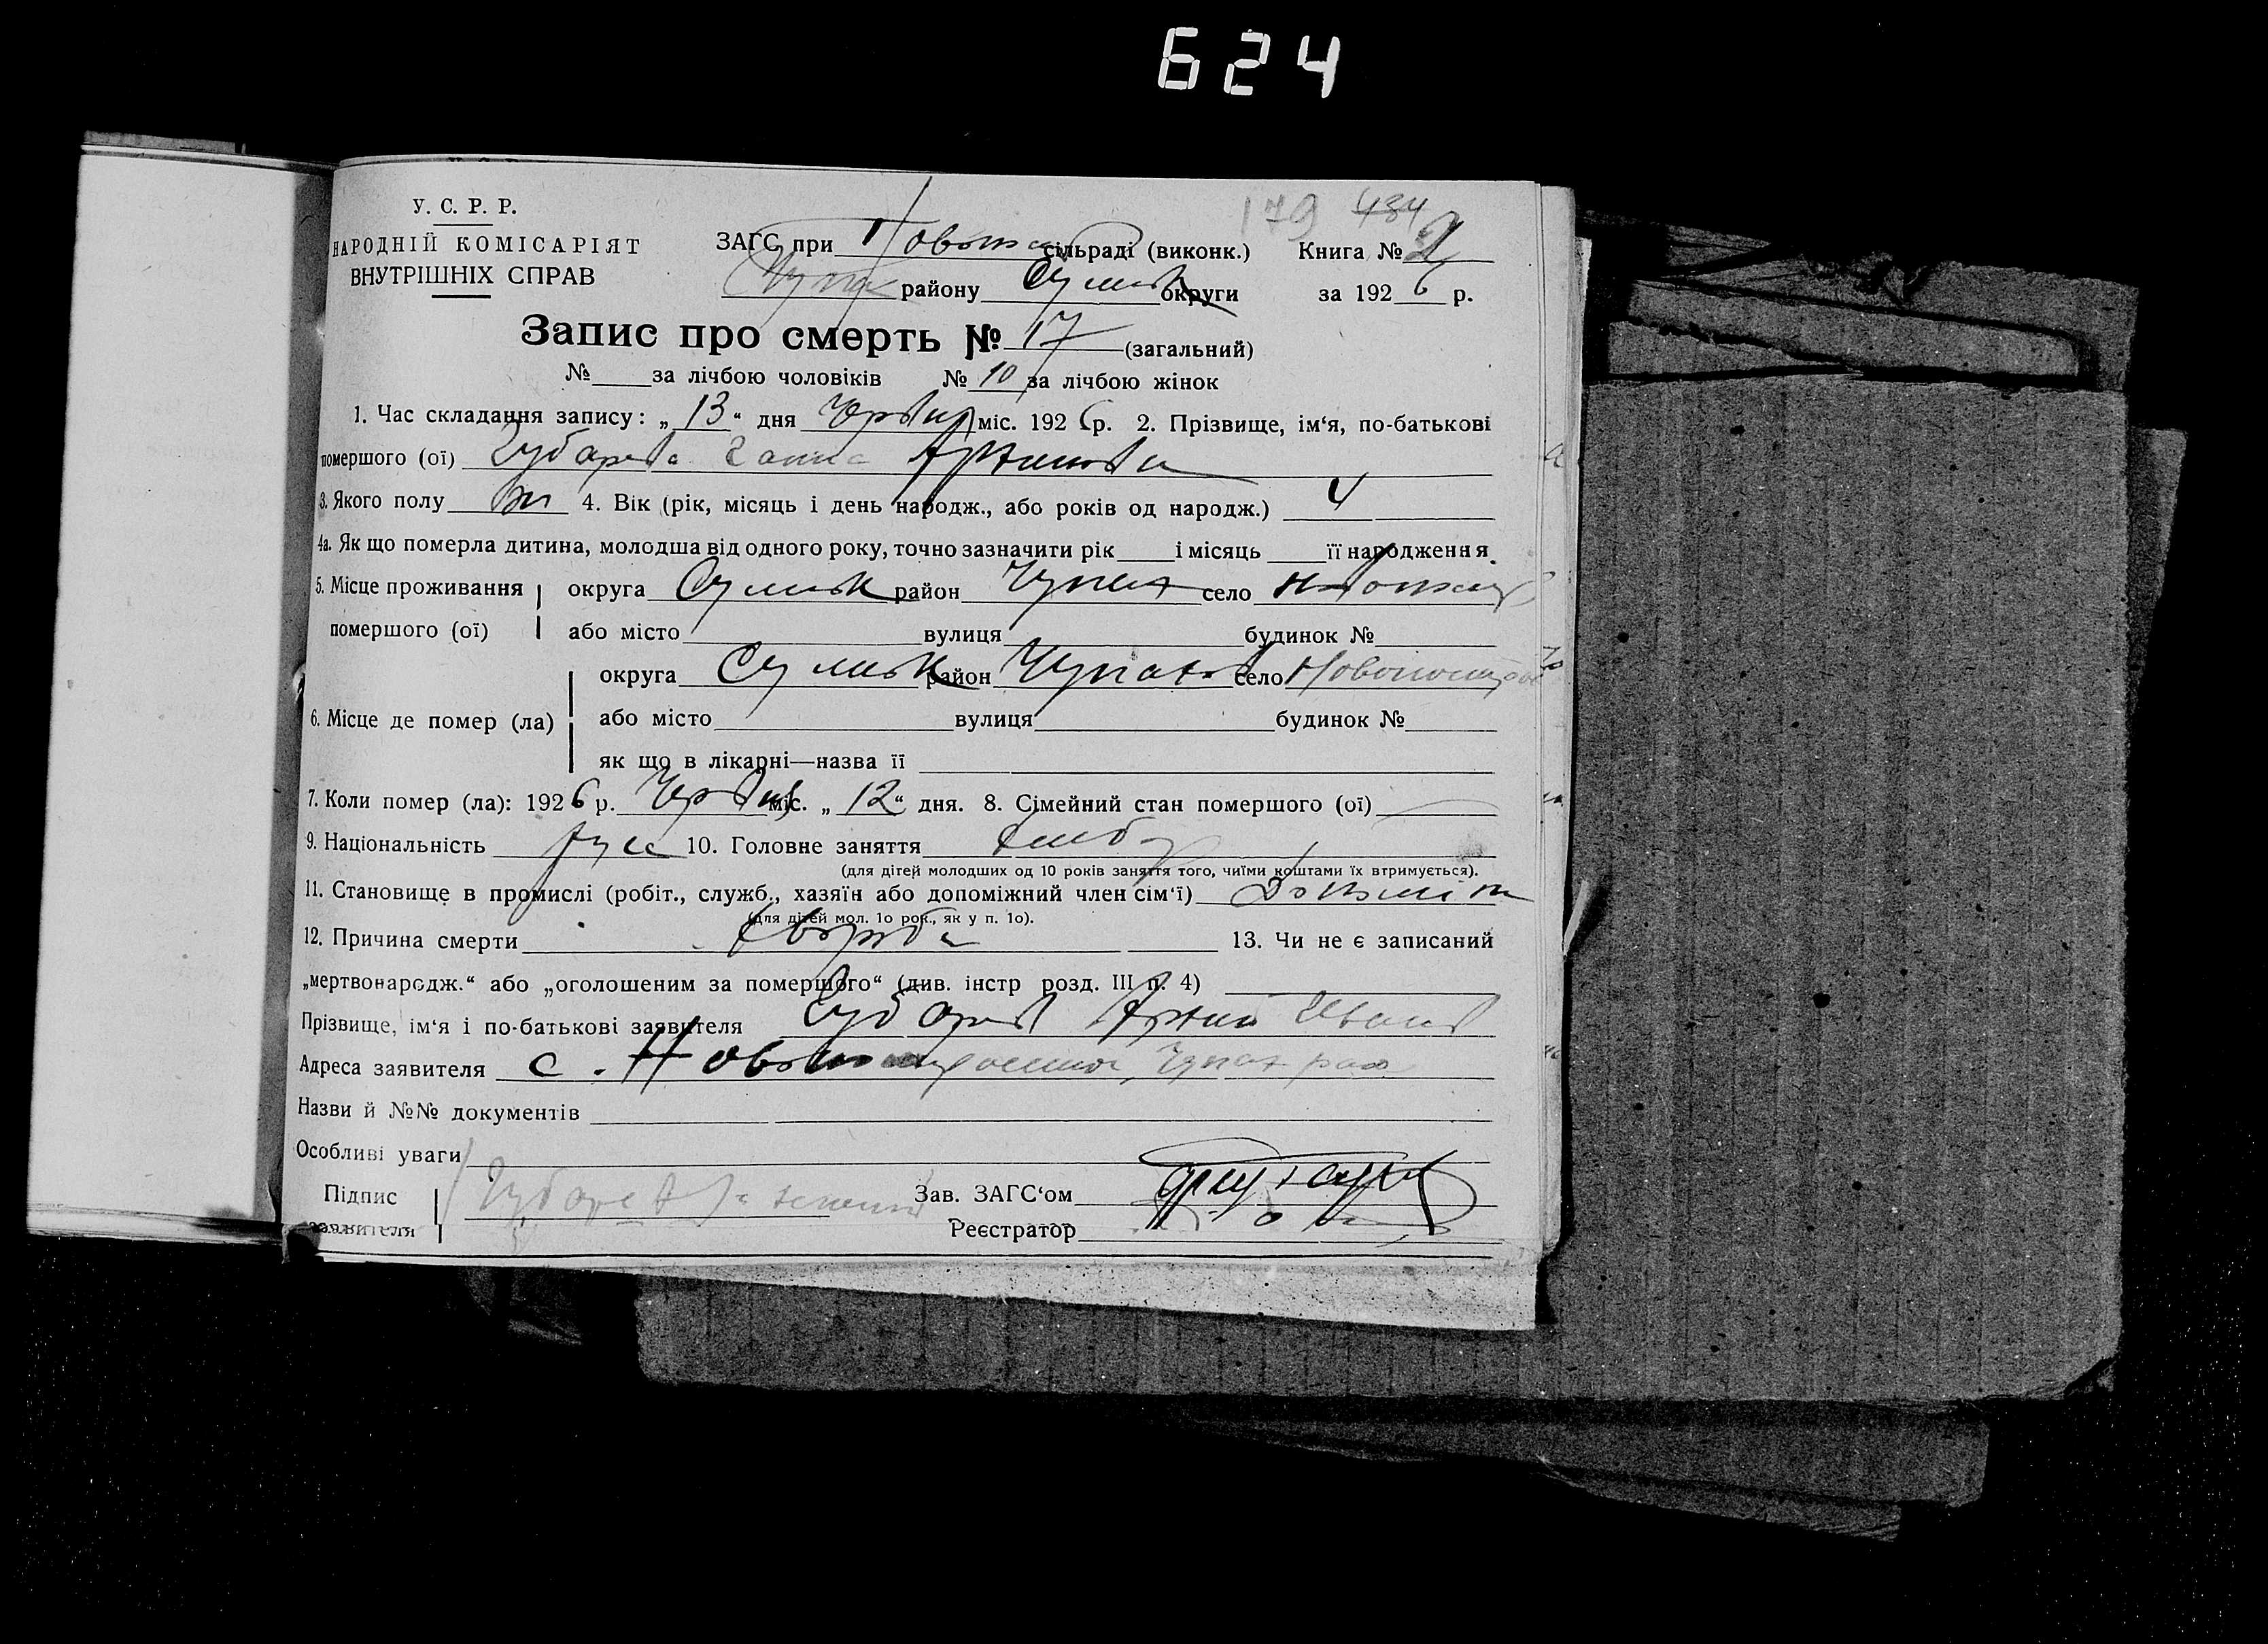 624
179 434
У. С. Р. Р.
НАРОДНІЙ КОМІСАРІЯТ
ВНУТРІШНІХ СПРАВ
ЗАГС при сільраді (виконк.) Книга № 2
району Сумськ округи за 1926 р.
Запис про смерть № 17 (загальний)
№ за лічбою чоловіків № 10 за лічбою жінок
1. Час складання запису: „13“ дня Червня міс. 1926 р. 2. Прізвище, ім‘я, по-батькові
помершого (ої) Губарева Ганна
3. Якого полу ж 4. Вік (рік, місяць і день народж., або років од народж.) 4
4а. Як що померла дитина, молодша від одного року, точно зазначити рік і місяць її народження.
5. Місце проживання округа Сумськ район Чупах село
помершого (ої) або місто вулиця будинок №
округа Сумськ район Чупахів село
6. Місце де помер (ла) або місто вулиця будинок №
як що в лікарні—назва її
7. Коли помер (ла): 1926 р. Червня міс. „12“ дня. 8. Сімейний стан помершого (ої)
9. Національність руск 10. Головне заняття хлібор
(для дітей молодших од 10 років заняття того, чиїми коштами їх втримується).
11. Становище в промислі (робіт., служб., хазяїн або допоміжний член сім‘ї)
(для дітей мол. 1о рок., як у п. 1о).
12. Причина смерти хвороба 13. Чи не є записаний
„мертвонародж.“ або „оголошеним за помершого“ (див. інстр розд. III п. 4)
Прізвище, ім‘я і по-батькові заявителя Губарев Иванов
Адреса заявителя с. Чупах рай
Назви й №№ документів
Особливі уваги
Підпис Губарев Зав. ЗАГС‘ом
заявителя Реєстратор